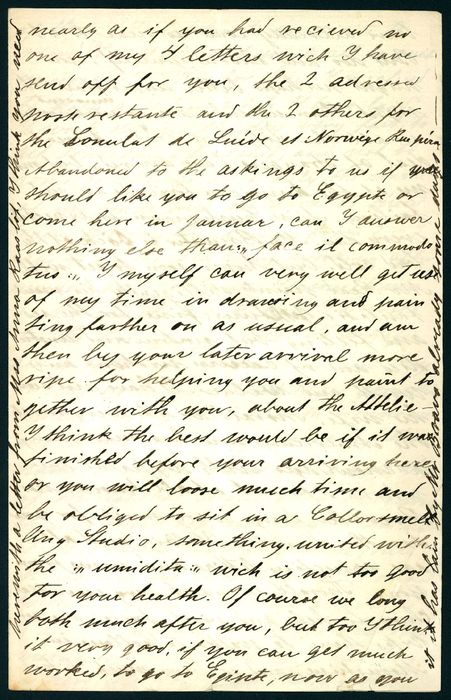 nearly as if you had recieved no
one of my 4 letters wich I have
send off for you, the 2 adressed
poste restante and the 2 others for
the Consulat de Suéde et Norwége
Abandoned to the askings to us if you
should like you to go to Egypte or
come here in januar, can I answer
nothing else than „ face il commodo
tuo „. I myself can very well get use
of my time in drawing and pain
ting farther on as usual, and am
then by your later arrival more
ripe for helping you and paint to
gether with you, about the Attelie-
I think the best would be if it was
finished before your arriving here
or you will loose much time and
be obliged to sit in a Collorsmell
ing Studio, something united with
the „ umidita „ wich is not too good
for your health. Of course we long
both much after you, but too I think
it very good, if you can get much
worked, to go to Egipte, now as you
herewith a letter from Mrs Anna I think you need
it it has lain by Mr Bravo already some days —